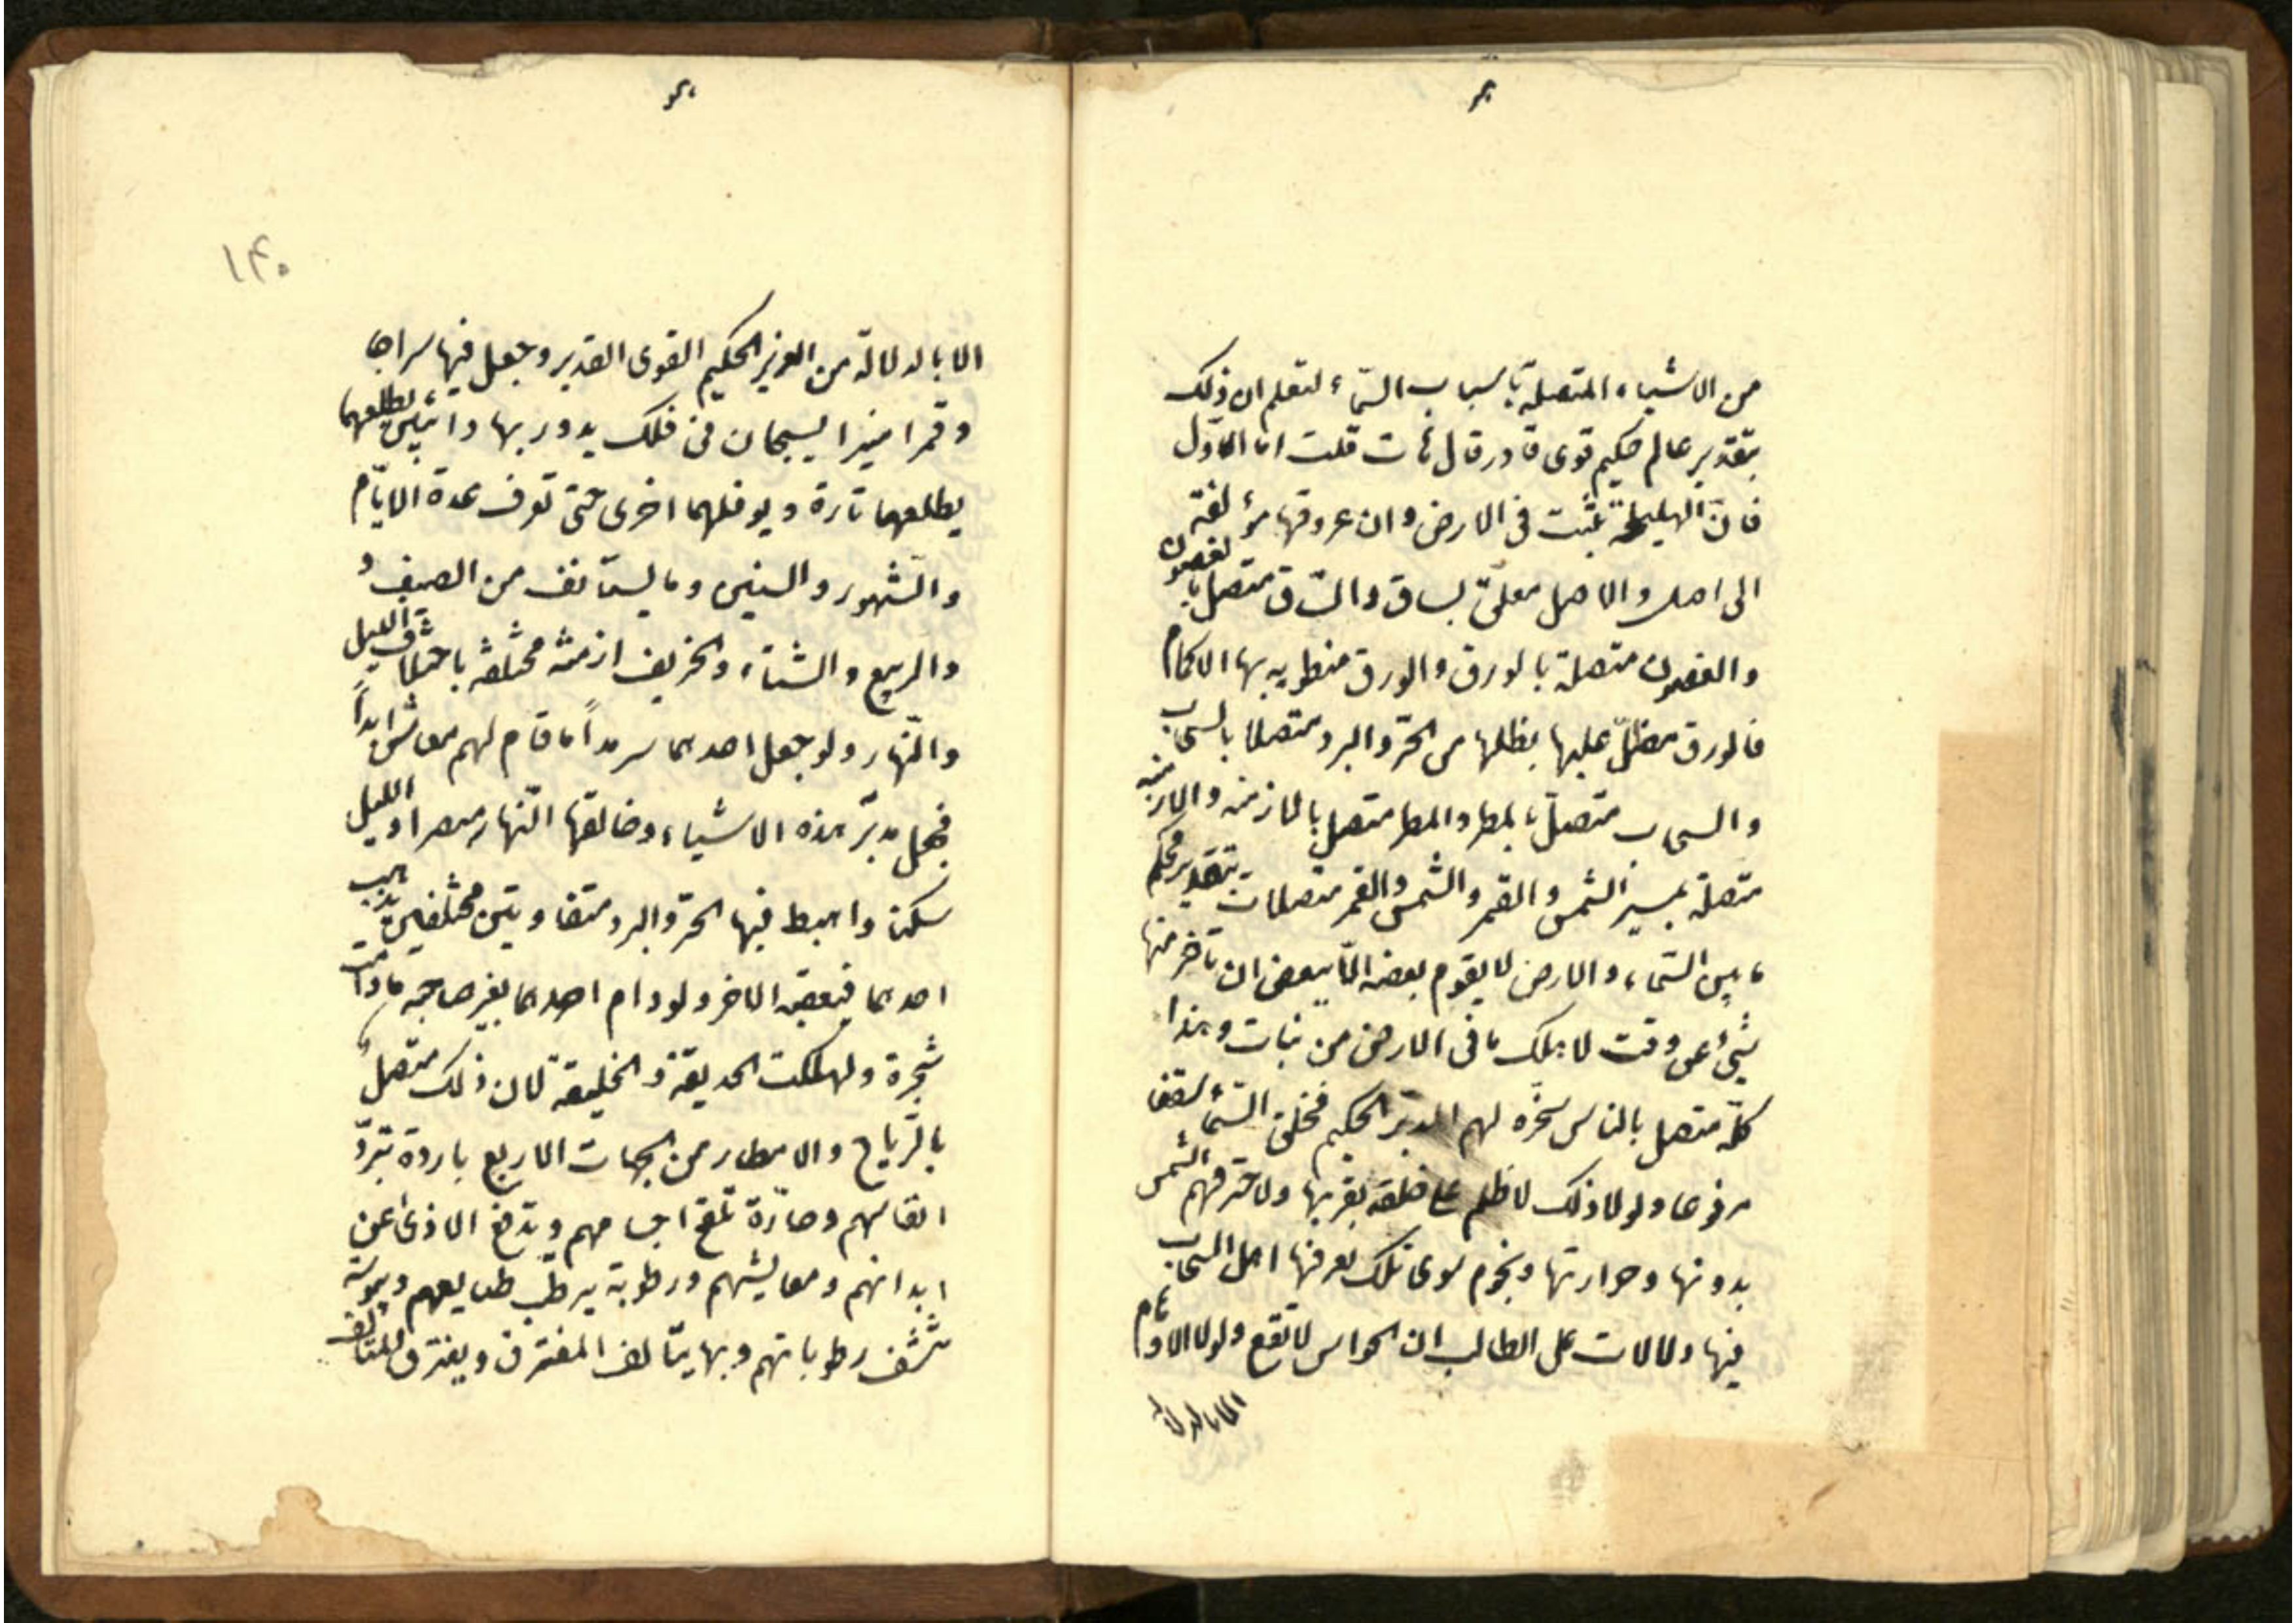 من الاشياء المتصلة باسباب السّماء لتعلم ان ذلك
بتقدير عالم حكيم قوى قادر قال هات قلت اما الاوّل
فانّ الهليلجة تثبت فى الارض وان عروقها مؤلفة
الى اصل والاصل معلّق بساق والسّاق متصل بالغصون
والغصون متصلة بالورق والورق منطويه بها الاكمام
فالورق مظلّ عليها يظلها من الحرّ والبرد متصلا بالسحاب
والسحاب متصلّ بالمطر والمطر متصل بالازمنه والازمنه
متصلة بمسير الشمس والقمر والشمس والقمر متصلات بتقدير محكم
ما بين السّماء والارض لا يقوم بعضه الّا ببعض ان تاخر منها
شيئ عن وقت لا هلك ما فى الارض من نبات وهذا
كلّه متصل بالناس سخّره لهم المدبّر الحكيم فخلق السّماء سقفا
مرفوعا ولولا ذلك لاظلم على خلقه بقربها ولاحترقهم الشمس
بدونها وحرارتها ونجوم سوى تلك يعرفها اهل السحاب
فيها دلالات على الطالب ان الحواس لا تقع ولولا الاوهام
الا بالدلالة
١٤٠
الا بالدلالة من العزيز الحكيم القوى القدير وجعل فيها سراجا
وقمرا منيرا يسبحان فى فلك يدور بها دائبين يطلعهما
يطلعهما تارة ويوفلهما اخرى حتى تعرف عدة الايّام
والشّهور والسنين وما يستأنف من الصيف و
والربيع والشتاء والخريف ازمنة مختلفة باختلاف الليل
والنّهار ولو جعل احدهما سرمداً ما قام لهم معاش ابداً
فجعل مدبّر هذه الاشياء وخالقها النّهار مبصرا والليل
سكنا واهبط فيها الحرّ والبرد متضاديتين مختلفين يذهب
احدهما فيعقبه الاخر ولو دام احدهما بغير صاحبه ما دامت
شجرة ولهلكت الحديقة والخليقة لان ذلك متصلٌ
بالرّياح والامطار من الجهات الاربع باردة تبرّد
انفاسهم وحارّة تلقح اجسامهم وتدفع الاذى عن
ابدانهم ومعايشهم ورطوبة يرطّب طبايعهم ويبوسة
تنشف رطوباتهم وبها يتألف المفترق ويفترق المتالف